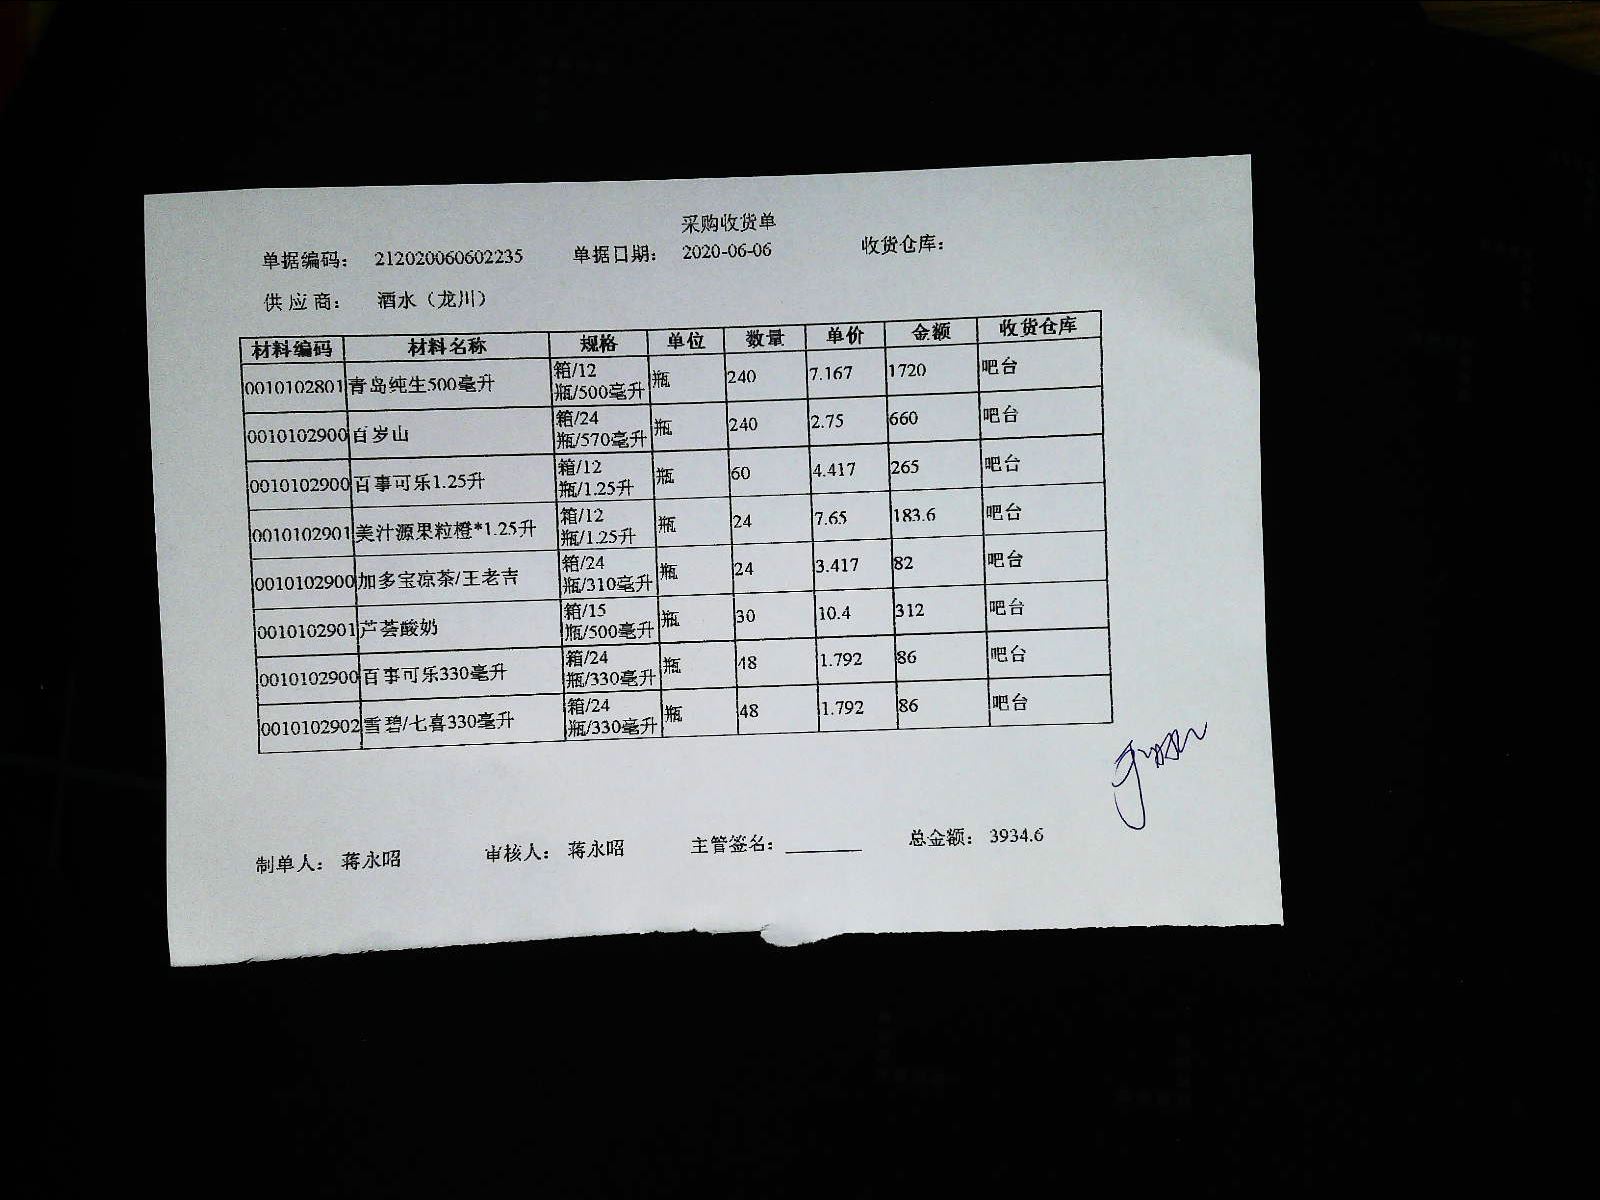 采购收货单
单据编码： 212020060602235 单据日期： 2020-06-06 收货仓库：
供 应 商： 酒水（龙川）
材料编码 材料名称 规格 单位 数量 单价 金额 收货仓库
0010102801 青岛纯生500毫升 箱/12瓶/500毫升 瓶 240 7.167 1720 吧台
0010102900 百岁山 箱/24瓶/570毫升 瓶 240 2.75 660 吧台
0010102900 百事可乐1.25升 箱/12瓶/1.25升 瓶 60 4.417 265 吧台
0010102901 美汁源果粒橙*1.25升 箱/12瓶/1.25升 瓶 24 7.65 183.6 吧台
0010102900 加多宝凉茶/王老吉 箱/24瓶/310毫升 瓶 24 3.417 82 吧台
0010102901 芦荟酸奶 箱/15瓶/500毫升 瓶 30 10.4 312 吧台
0010102900 百事可乐330毫升 箱/24瓶/330毫升 瓶 48 1.792 86 吧台
0010102902 雪碧/七喜330毫升 箱/24瓶/330毫升 瓶 48 1.792 86 吧台
制单人： 蒋永昭 审核人： 蒋永昭 主管签名： 总金额： 3934.6